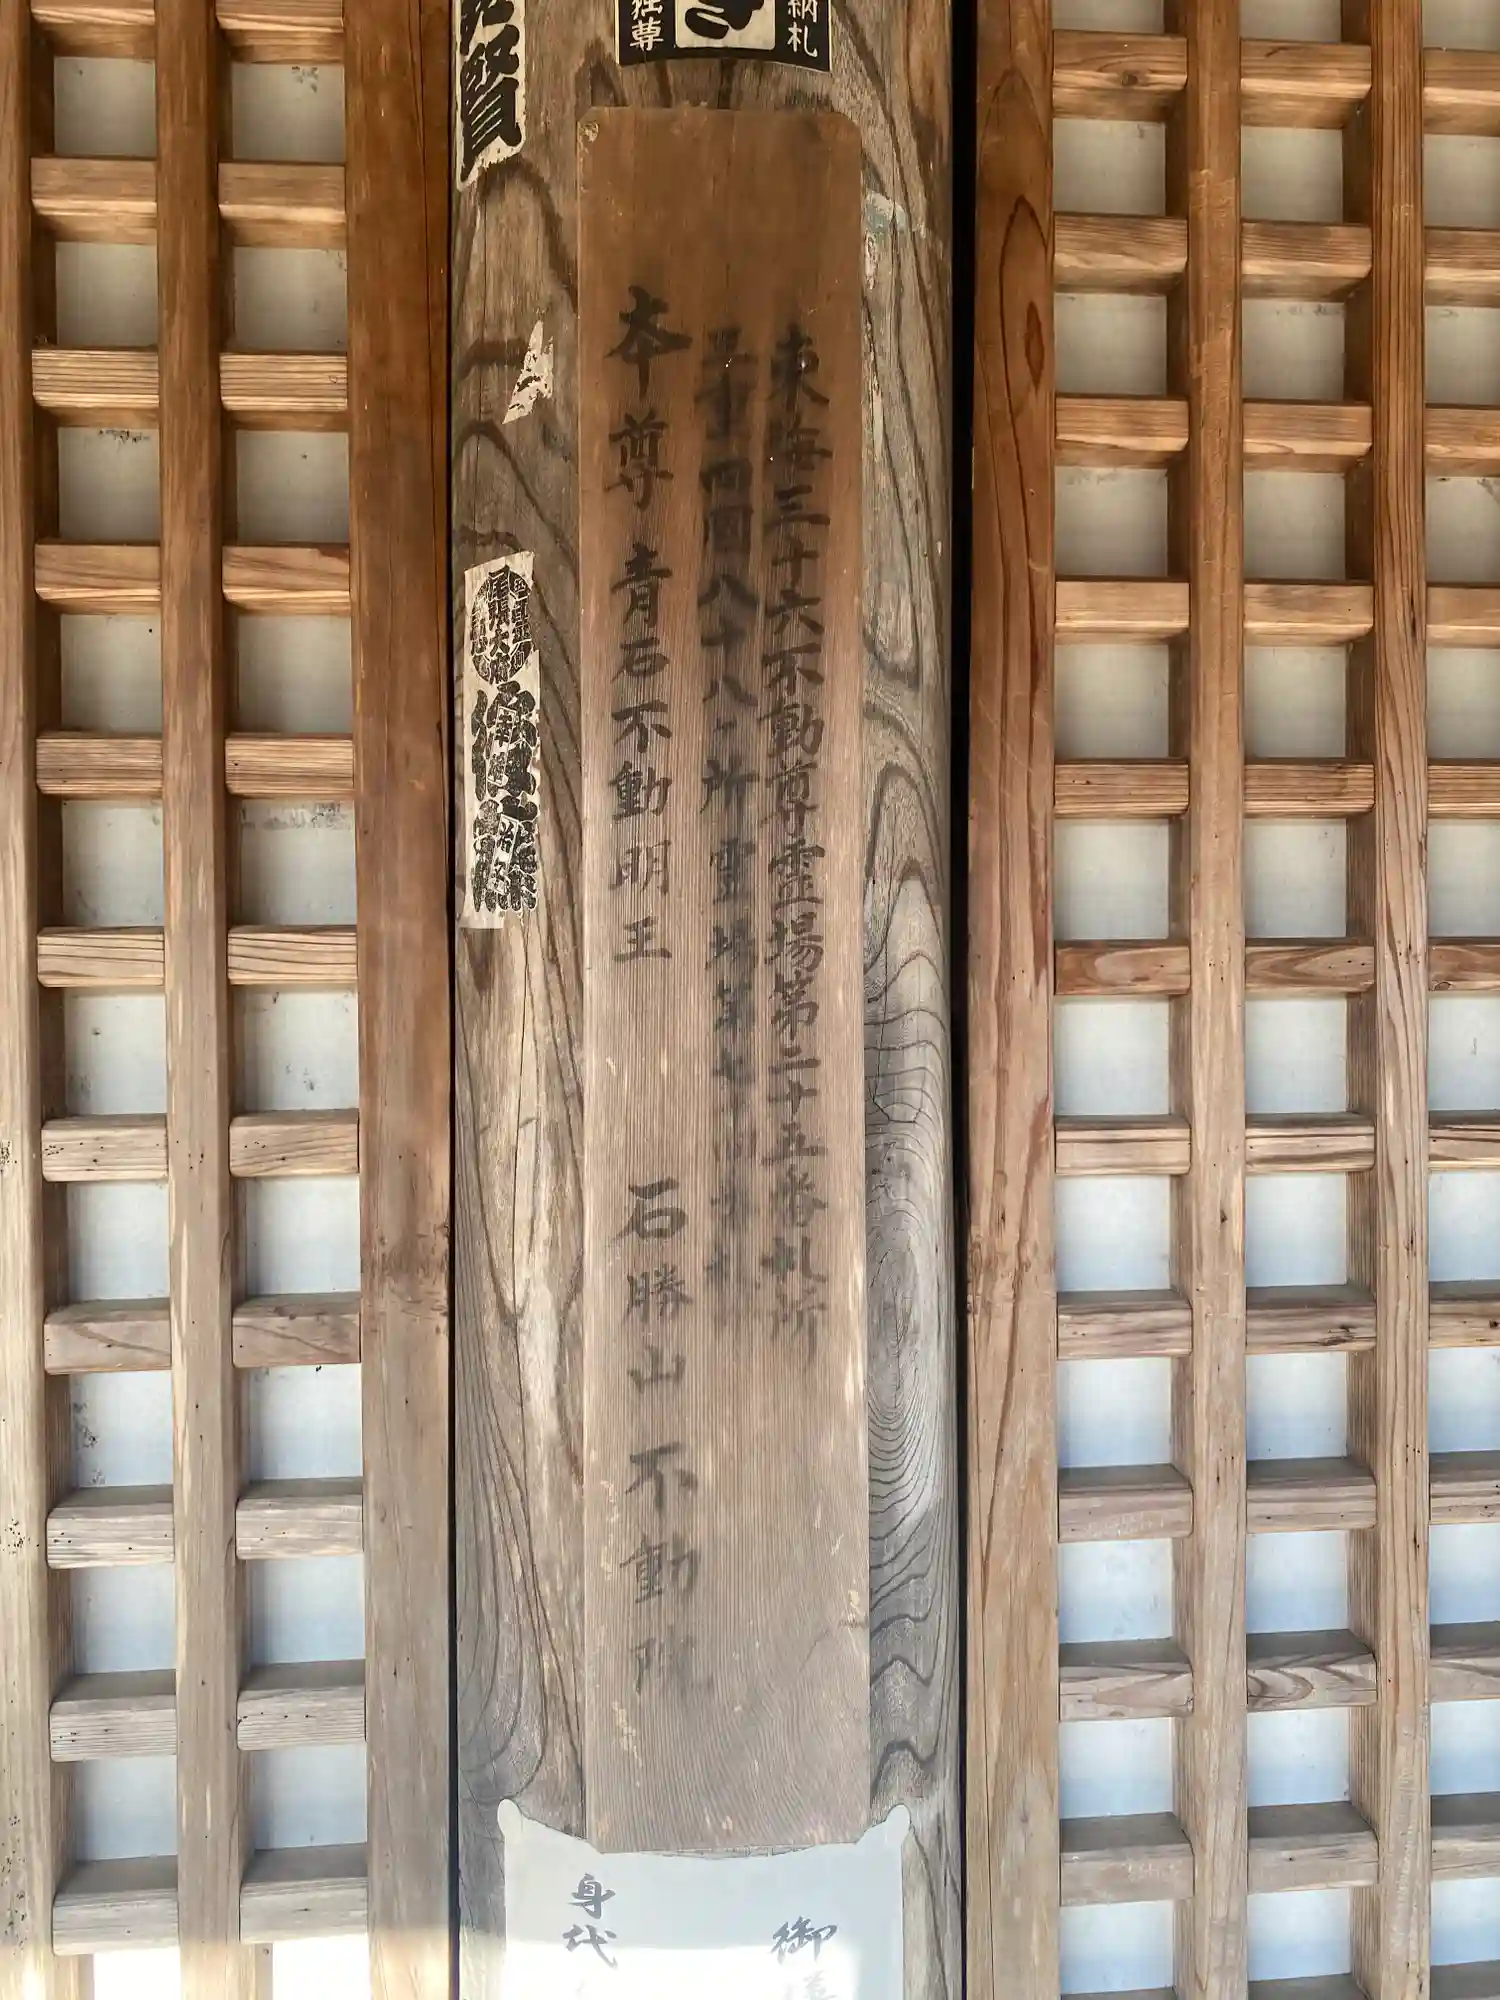 納札
独尊
東海三十六不動尊霊場第二十五番札所
四國八十八ヶ所霊場第七
本尊青石不動明王 石勝山不動院
賢
尾張大府
御
身代